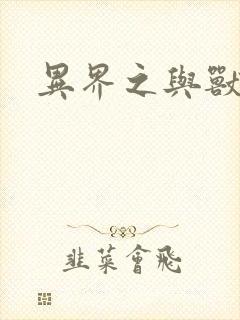 異界之與獸
韭菜會飛